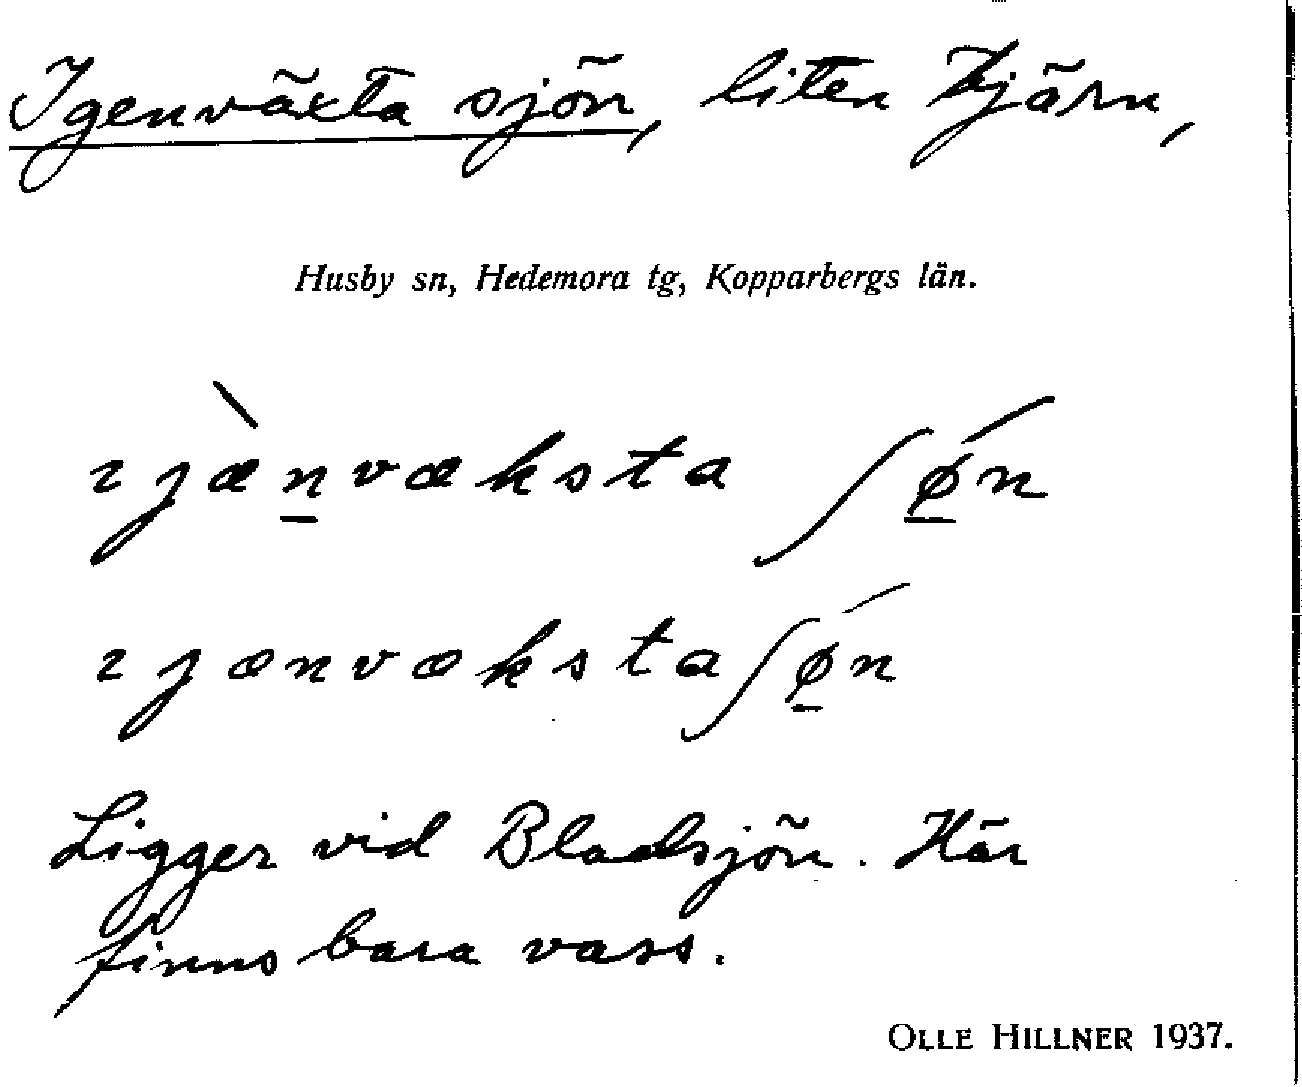 Igenväxta sjön, liten tjärn,
Husby sn, Hedemora tg, Kopparbergs län.
ɩjæ̀n̲væksta ʃǿ̲n
ɩjænvækstaʃǿ̲n
Ligger vid Bladsjön. Här
finns bara vass.
OLLE HILLNER 1937.